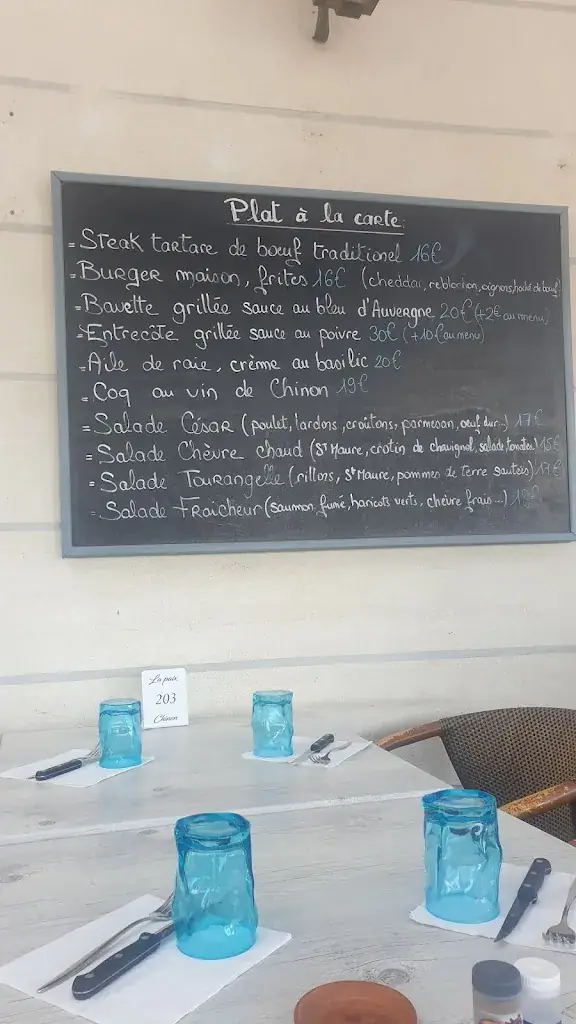 Plat à la carte:
= Steak tartare de bœuf traditionel 16€
= Burger maison, frites 16€ (cheddar, reblochon, oignons, haché de bœuf)
= Bavette grillée sauce au bleu d'Auvergne 20€ (+2€ au menu)
= Entrecôte grillée sauce au poivre 30€ (+10€ au menu)
= Aile de raie, crème au basilic 20€
= Coq au vin de Chinon 19€
= Salade César (poulet, lardons, croûtons, parmesan, œuf dur...) 17€
= Salade Chèvre chaud (St Maure, crotin de chavignol, salade, tomates) 15€
= Salade Tourangelle (rillons, St Maure, pommes de terre sautées) 17€
= Salade Fraîcheur (saumon fumé, haricots verts, chèvre frais...)
La paix
203
Chinon